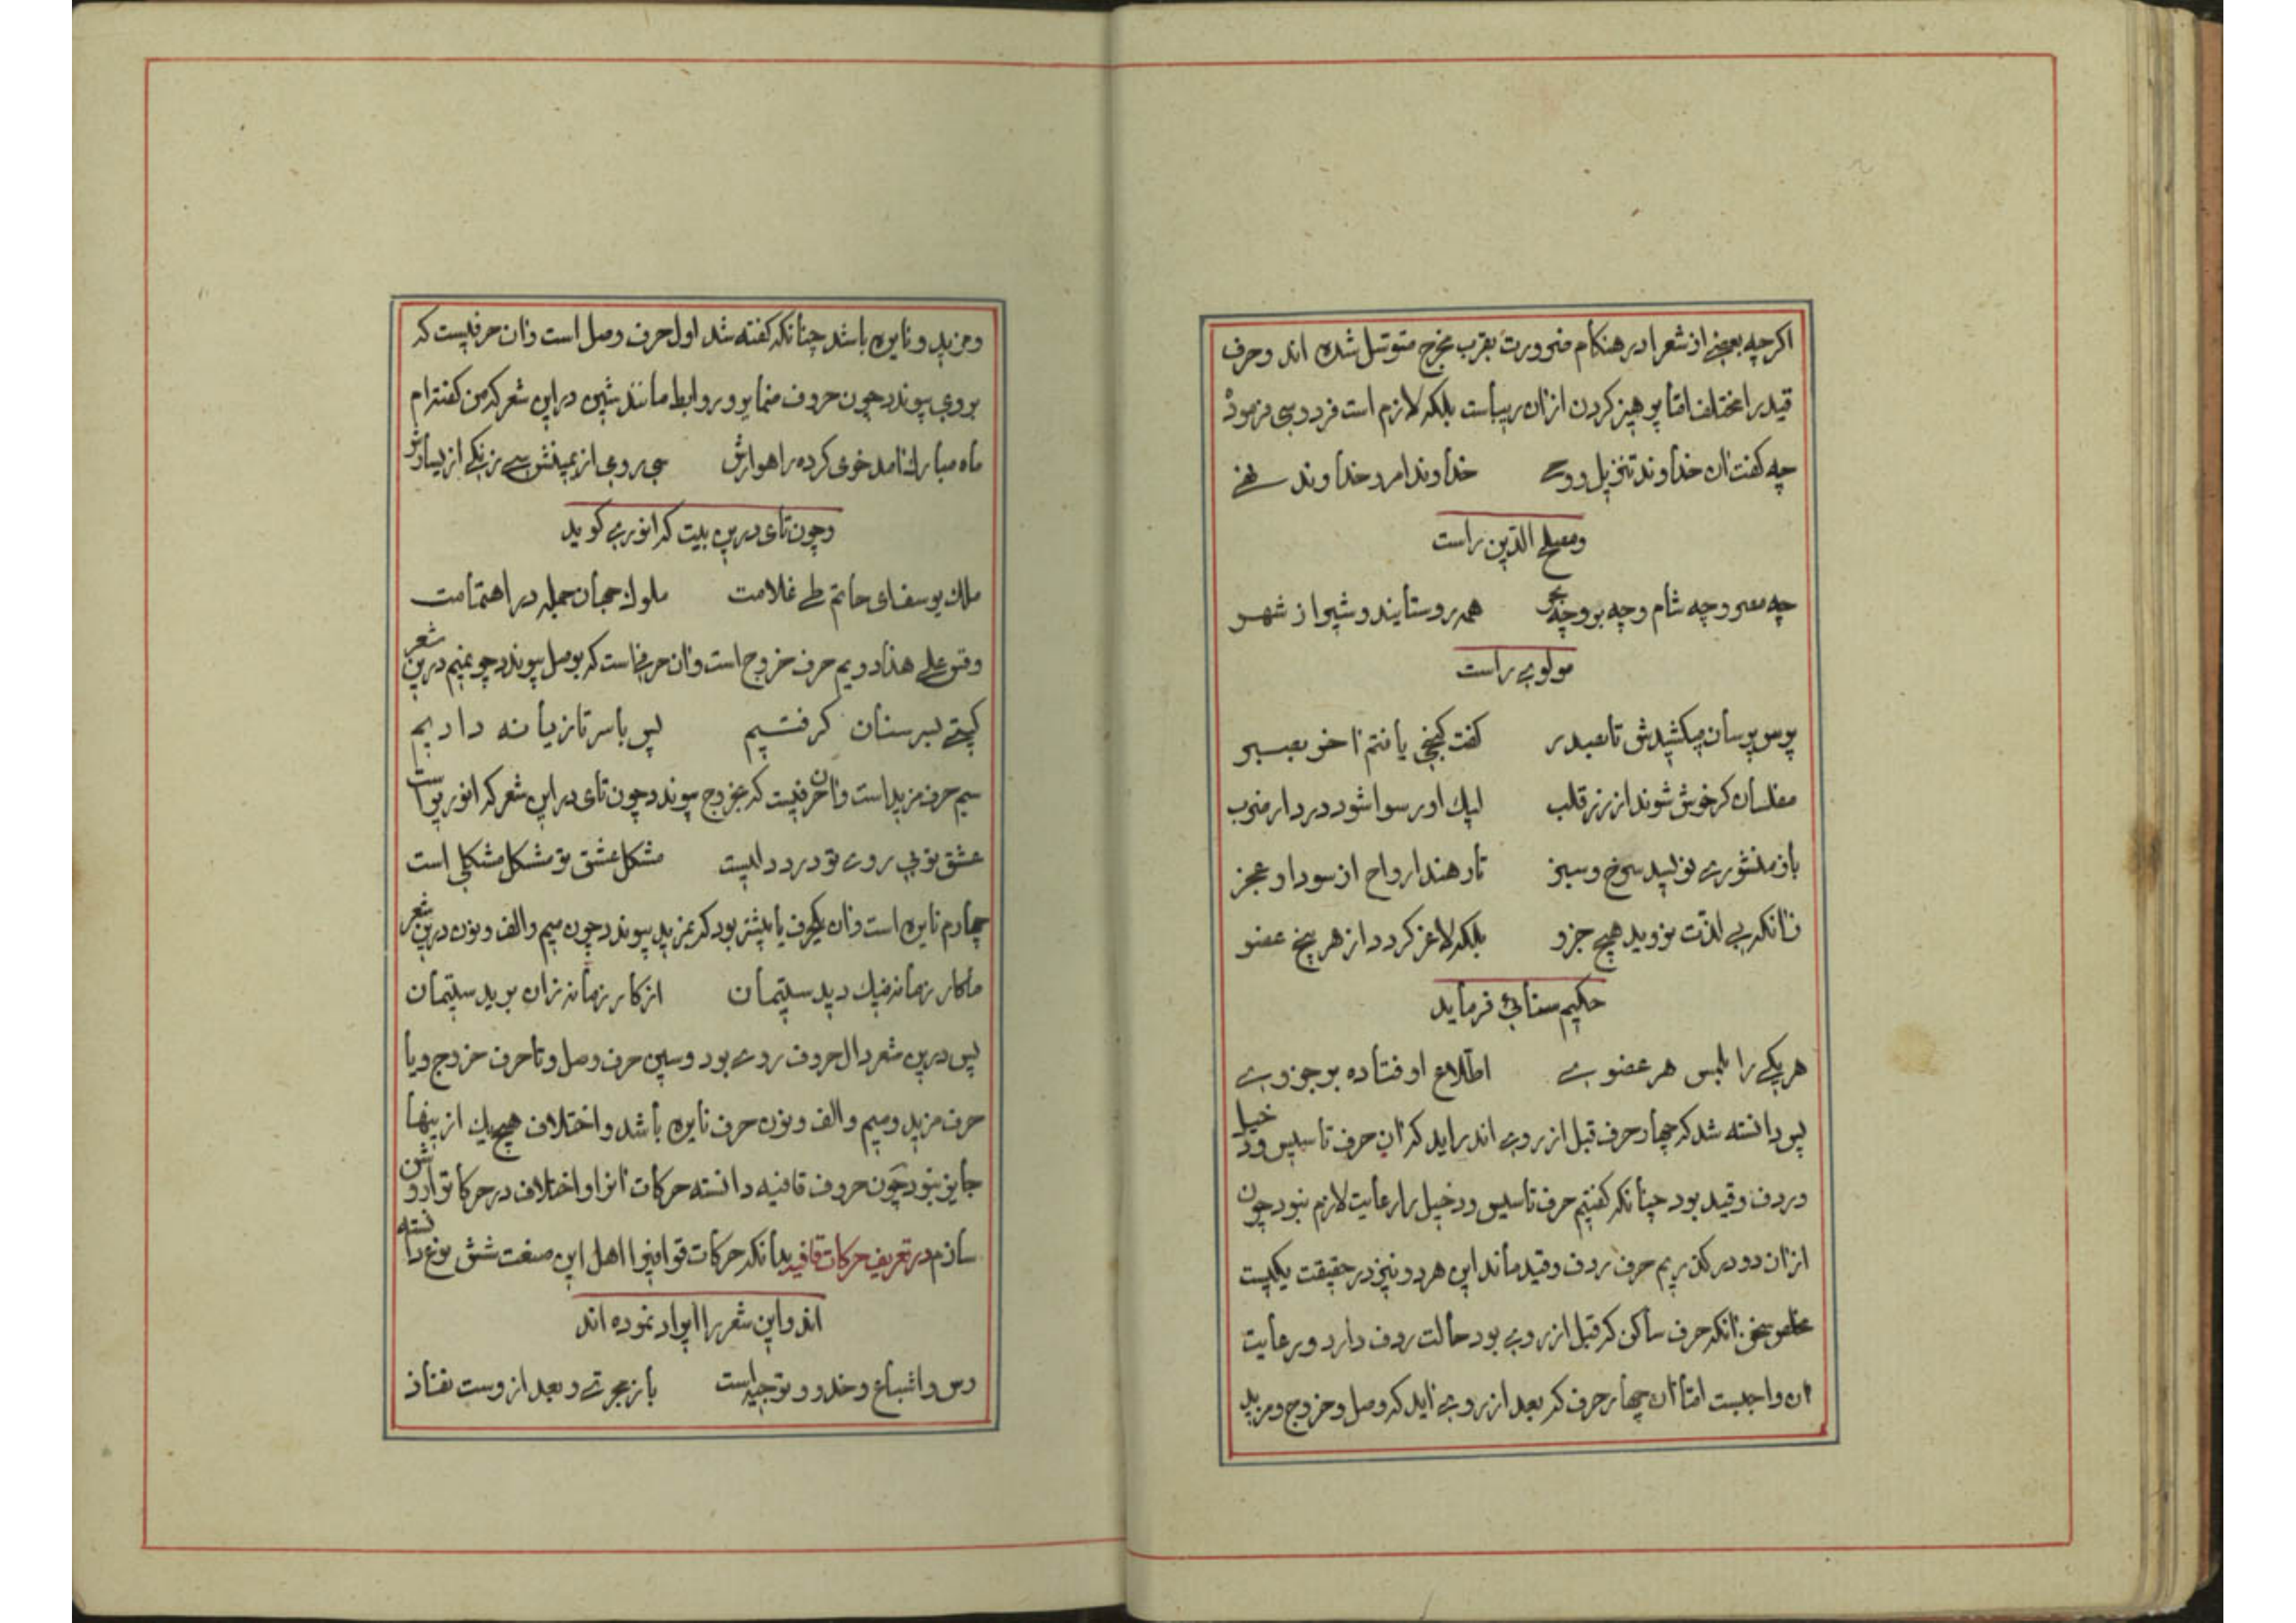 اکرچه بعضی از شعرا در هنکام ضرورت بقرب مخرج متوسل شده اند و حرف
قید را مختلف امّا پرهیز کردن از ان ریباست بلکه لازم است فردوسی فرموده
چه کفت ان خداوند تنزیل و وحی خداوند امر و خداوند نهی
و مصلح الدّین راست
چه مصر و چه شام و چه بر و چه بحر همه روستایند و شیراز شهر
مولوی راست
پرس پرسان میکشیدش تا بصدر کفت کنجی یافتم اخر بصبر
مفلسان کر خوش شوند از زر قلب لیک او رسوا شود در دار ضرب
باز منشوری نویسد سرخ و سبز تا رهند ارواح از سودا و عجز
زانکه بی لذّت نروید هیچ جزو بلکه لاغر کردد از هر پیچ عضو
حکیم سنائی فرماید
هر یکی را بلمس هر عضوی اطّلاع اوفتاده بر جزوی
پس دانسته شد که چهار حرف قبل از روی اند راید که ان حرف تاسیس و دخیل
و ردف و قید بود چنانکه کفتیم حرف تاسیس و دخیل را رعایت لازم نبود چون
از ان دو در کذریم حرف ردف و قید ماند این هر دو نیز در حقیقت یکیست
زانکه حرف ساکن که قبل از روی بود حالت ردف دارد و رعایت
ان واجبست امّا ان چهار حرف که بعد از روی اید که وصل و خروج و مزید
و مزید و نایره باشد چنانکه کفته شد اول حرف وصل است وان حرفیست که
بروی پیوندد چون حروف ضمایر و روابط مانند شین در این شعر که من کفته‌ام
ماه مبارک امد خوی کرده راهوارش سی رومی از یمینش سی زنکی از یسارش
و چون تای درین بیت که انوری کوید
ملک یوسف ای حاتم طی غلامت ملوک جهان جمله در اهتمامت
و قس علی هذا دویم حرف خروج است وان حرفی است که بوصل پیوندد چو میم درین شعر
کیتی بسر سنان کرفتیم پس با سر تازیانه دادیم
سیم حرف مزید است وان حرفیست که بخروج پیوندد چون تای در این شعر که انوریراست
عشق تو بی روی تو درد دلیست مشکل عشق تو مشکل مشکلی است
چهارم نایره است وان یکحرف یا بیشتر بود که بمزید پیوندد چون میم و الف و نون درین شعر
ما کار زمانه نیک دیدستیمان از کار زمانه زان بریدستیمان
پس درین شعر دال حروف روی بود و سین حرف وصل و تا حرف خروج و یا
حرف مزید و میم و الف و نون حرف نایره باشد و اختلاف هیچیک از ینها
جایز نبود چون حروف قافیه دانسته حرکات انرا و اختلاف در حرکات را روشن
سازم در تعریف حرکات قافیه بدانکه حرکات قوافیرا اهل این صنعت شش نوع دانسته
اند و این شعر را ایراد نموده اند
رس و اشباع و حذو و توجیه است باز مجری و بعد از وست نفاذ